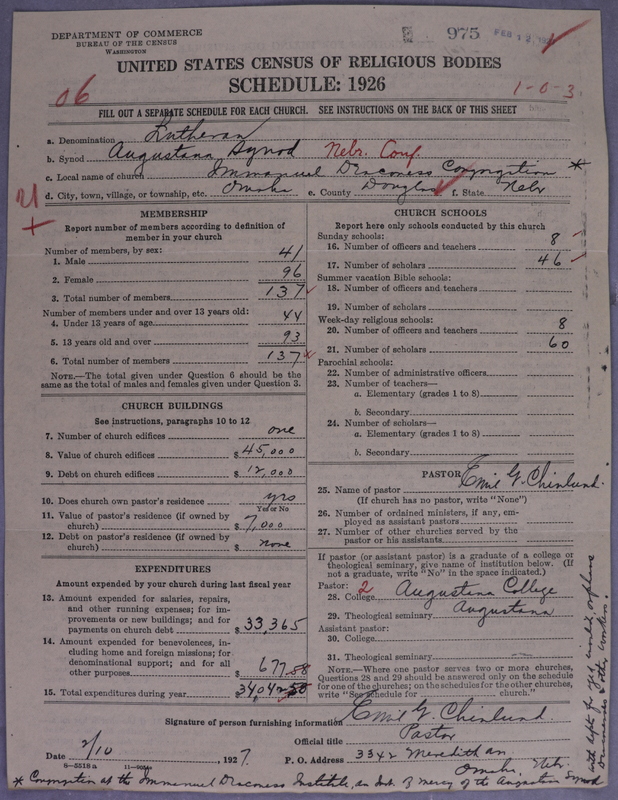 DEPARTMENT OF COMMERCE
BUREAU OF THE CENSUS
WASHINGTON
975 FEB 12
UNITED STATES CENSUS OF RELIGIOUS BODIES
SCHEDULE: 1926
06
1-0-3
FILL OUT A SEPARATE SCHEDULE FOR EACH CHURCH. SEE INSTRUCTIONS ON THE BACK OF THIS SHEET
a. Denomination Lutheran
b. Synod Augustana Synod Nebr. Conf
c. Local name of church Immanuel Deaconess Congregation *
d. City, town, village, or township, etc. Omaha e. County Douglas f. State Nebr
MEMBERSHIP
Report number of members according to definition of member in your church
Number of members, by sex:
1. Male 41
2. Female 96
3. Total number of members 137
Number of members under and over 13 years old:
4. Under 13 years of age 44
5. 13 years old and over 93
6. Total number of members 137
NOTE.—The total given under Question 6 should be the same as the total of males and females given under Question 3.
CHURCH BUILDINGS
See instructions, paragraphs 10 to 12
7. Number of church edifices one
8. Value of church edifices $ 45,000
9. Debt on church edifices $ 12,000
10. Does church own pastor's residence yes
Yes or No
11. Value of pastor's residence (if owned by church) $ 7,000
12. Debt on pastor's residence (if owned by church) $ none
EXPENDITURES
Amount expended by your church during last fiscal year
13. Amount expended for salaries, repairs, and other running expenses; for improvements or new buildings; and for payments on church debt $ 33,365
14. Amount expended for benevolences, including home and foreign missions; for denominational support; and for all other purposes $ 677.58
15. Total expenditures during year $ 34,042.58
CHURCH SCHOOLS
Report here only schools conducted by this church
Sunday schools:
16. Number of officers and teachers 8
17. Number of scholars 46
Summer vacation Bible schools:
18. Number of officers and teachers
19. Number of scholars
Week-day religious schools:
20. Number of officers and teachers 8
21. Number of scholars 60
Parochial schools:
22. Number of administrative officers
23. Number of teachers—
a. Elementary (grades 1 to 8)
b. Secondary
24. Number of scholars—
a. Elementary (grades 1 to 8)
b. Secondary
PASTOR
25. Name of pastor Emil G. Chinlund
(If church has no pastor, write "None")
26. Number of ordained ministers, if any, employed as assistant pastors
27. Number of other churches served by the pastor or his assistants
If pastor (or assistant pastor) is a graduate of a college or theological seminary, give name of institution below. (If not a graduate, write "No" in the space indicated.)
Pastor: 2
28. College Augustana College
29. Theological seminary Augustana
Assistant pastor:
30. College
31. Theological seminary
NOTE.—Where one pastor serves two or more churches, Questions 28 and 29 should be answered only on the schedule for one of the churches; on the schedules for the other churches, write "See schedule for church."
Signature of person furnishing information Emil G. Chinlund
Official title Pastor
Date 2/10 1927. P. O. Address 3342 Meredith Av
Omaha, Nebr.
8-5518 a
* Congregation at the Immanuel Deaconess Institute, an Inst. of mercy of the Augustana Synod
with depts for aged, invalids, orphans
Deaconesses & other workers.